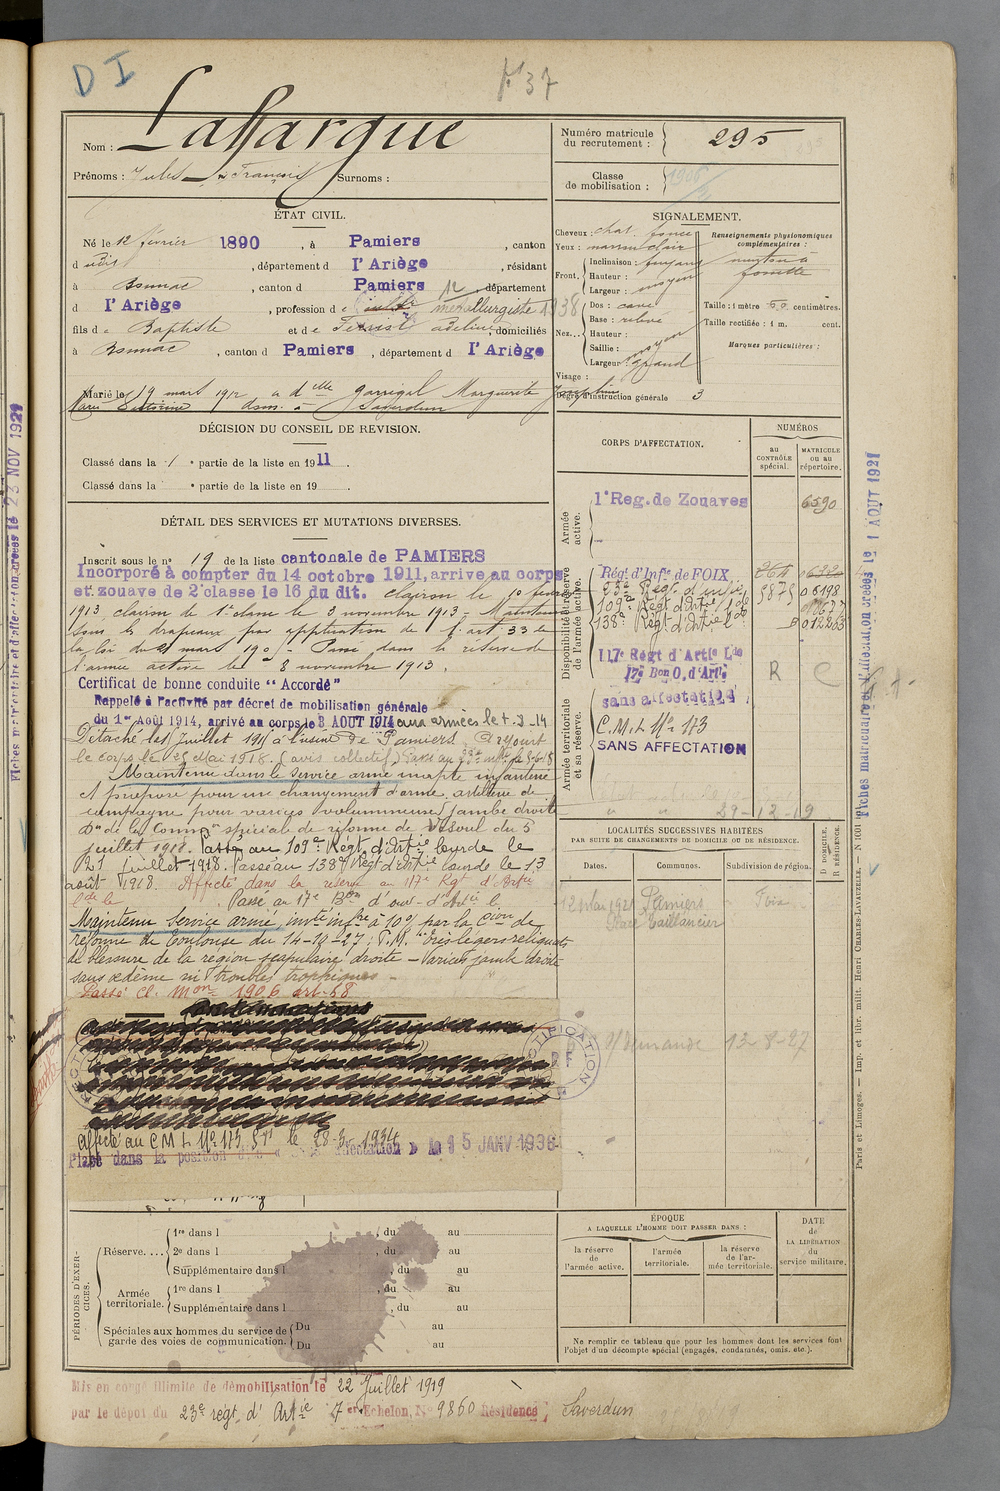 D I
F 37
Nom : Laffargue
Prénoms : Jules François Surnoms :
Numéro matricule du recrutement : 295
Classe de mobilisation : 1906
ÉTAT CIVIL.
Né le 12 février 1890, à Pamiers, canton
d dudit, département d l'Ariège, résidant
à Bonnac, canton d Pamiers, département
d l'Ariège, profession de métallurgiste 1938
fils de Baptiste et de adeline, domiciliés
à Bonnac, canton d Pamiers, département d l'Ariège
Marié le 19 mars 1912 à dlle Garrigal Marguerite Joséphine
dom. à Saverdun
SIGNALEMENT.
Cheveux : chat. foncé
Yeux : marron clair
Front, Inclinaison : fuyant
Hauteur : moyen
Largeur : moyen
Nez... Dos : cavé
Base : relevé
Hauteur :
Saillie : moyen
Largeur : grand
Visage :
Degré d'instruction générale 3
Renseignements physionomiques complémentaires :
menton à fossette
Taille : 1 mètre 60 centimètres.
Taille rectifiée : 1 m. cent.
Marques particulières :
DÉCISION DU CONSEIL DE REVISION.
Classé dans la 1 e partie de la liste en 1911.
Classé dans la e partie de la liste en 19 .
DÉTAIL DES SERVICES ET MUTATIONS DIVERSES.
Inscrit sous le n° 19 de la liste cantonale de PAMIERS
Incorporé à compter du 14 octobre 1911, arrive au corps
et zouave de 2e classe le 16 du dit. clairon le 10 février
1913, clairon de 1e classe le 3 novembre 1913 - Maintenu
sous les drapeaux par application de l'art 33 de
la loi du 21 mars 1905 - Passé dans la réserve de
l'armée active le 8 novembre 1913.
Certificat de bonne conduite "Accordé"
Rappelé à l'activité par décret de mobilisation générale
du 1er Août 1914, arrivé au corps le 3 AOUT 1914 aux armées le
Détaché le Juillet 1915 à l'usine de Pamiers. A rejoint
le corps le 25 Mai 1918. (avis collectif) Passé au 23e
Maintenu dans le service armé inapte infanterie
et proposé pour un changement d'arme, artillerie de
campagne pour varices volumineuses jambe droite
Don de la Common spéciale de réforme de Vesoul du 5
juillet 1918. Passé au 109e Régt d'Artie lourde le
21 juillet 1918. Passé au 138e Régt d'Artie lourde le 13
août 1918. Affecté dans la réserve au 117e Rgt d'Artie
lde le . Passé au 17e Bon d'ouv. d'Artie l.
Maintenu service armé, invté infre à 10% par la Cion de
réforme de Toulouse du 14-10-27; P.M. "très légers reliquats
de blessure de la région scapulaire droite - Varices jambe droite
sans œdème ni troubles trophiques -
Passé Cl. Mon 1906 art. 58
RECTIFICATION
Affecté au C M L N° 173 le 28-3-1934
Placé dans la position d affectation » le 15 JANV 1936
CORPS D'AFFECTATION.
NUMÉROS
au CONTRÔLE spécial.
MATRICULE ou au répertoire.
Armée active.
1e Reg. de Zouaves 6590
Disponibilité et réserve de l'armée active.
Régt d'Infie de FOIX
23e Régt d'infie 5875 05198
109e Régt d'Artie Lde
138e Régt d'Artie Lde 012263
117e Régt d'Artie Lde
17e Bon O. d'Artie R
sans affectation
Armée territoriale et sa réserve.
C.M.L N° 173
SANS AFFECTATION
29-12-19
LOCALITÉS SUCCESSIVES HABITÉES
PAR SUITE DE CHANGEMENTS DE DOMICILE OU DE RÉSIDENCE.
Dates. Communes. Subdivision de région. D DOMICILE. R RÉSIDENCE.
12 1921 Pamiers Foix
Place Taillancier
s/ Demande 13-8-27
PÉRIODES D'EXERCICES.
Réserve.... 1re dans l , du au
2e dans l , du au
Supplémentaire dans l , du au
Armée territoriale. 1re dans l , du au
Supplémentaire dans l , du au
Spéciales aux hommes du service de garde des voies de communication. Du au
Du au
ÉPOQUE
A LAQUELLE L'HOMME DOIT PASSER DANS :
la réserve de l'armée active.
l'armée territoriale.
la réserve de l'armée territoriale.
DATE de LA LIBÉRATION du service militaire.
Ne remplir ce tableau que pour les hommes dont les services font l'objet d'un décompte spécial (engagés, condamnés, omis, etc.).
Mis en congé illimité de démobilisation le 22 Juillet 1919
par le dépôt du 23e régt d'Artie 7e Echelon, N° 9860 Résidence Saverdun
Fiches matriculaire et d'affectation créées le 23 NOV 1921
Fiches matriculaire et d'affectation créées le 1 AOUT 1921
Paris et Limoges. — Imp. et libr. milit. Henri CHARLES-LAVAUZELLE. — N° 1001